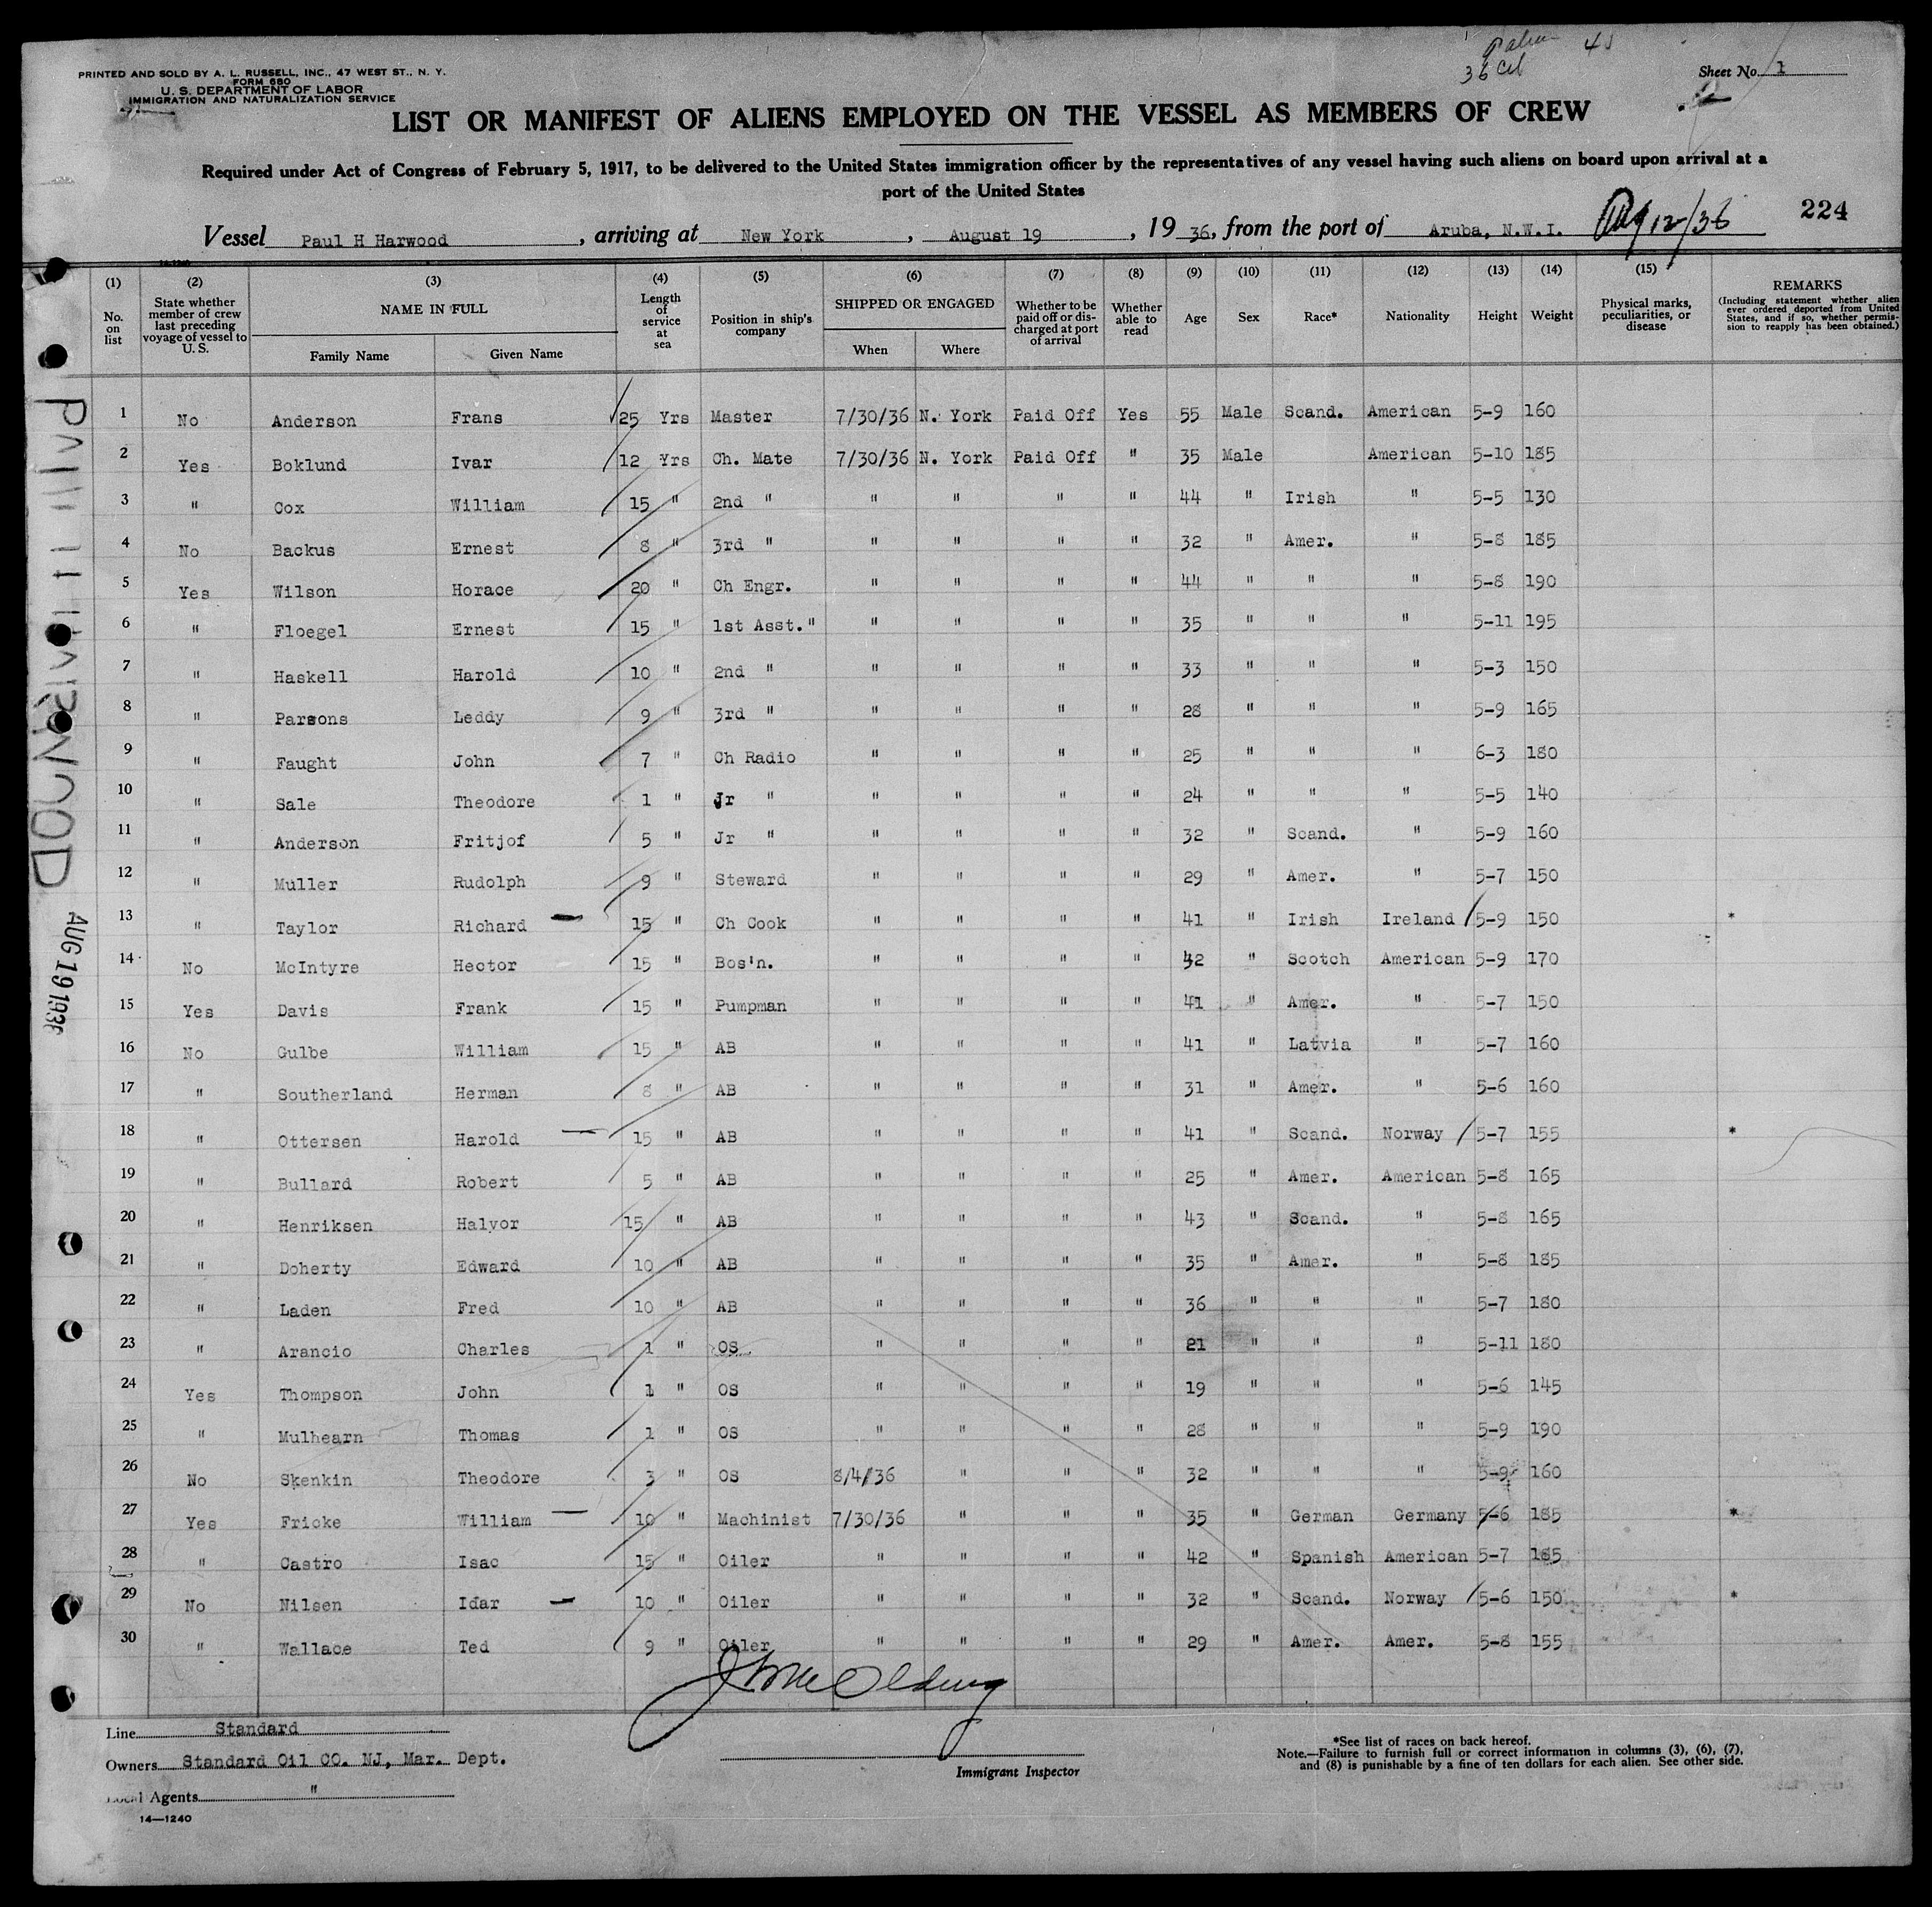 PRINTED AND SOLD BY A. L. RUSSELL, INC., 47 WEST ST., N. Y.
FORM 680
U. S. DEPARTMENT OF LABOR
IMMIGRATION AND NATURALIZATION SERVICE
36
Sheet No. 1
LIST OR MANIFEST OF ALIENS EMPLOYED ON THE VESSEL AS MEMBERS OF CREW
Required under Act of Congress of February 5, 1917, to be delivered to the United States immigration officer by the representatives of any vessel having such aliens on board upon arrival at a
port of the United States
224
Vessel Paul H Harwood, arriving at New York, August 19, 1936, from the port of Aruba, N.W.I. Aug 12/36
(1) No. on list (2) State whether member of crew last preceding voyage of vessel to U. S. (3) NAME IN FULL Family Name Given Name (4) Length of service at sea (5) Position in ship's company (6) SHIPPED OR ENGAGED When Where (7) Whether to be paid off or discharged at port of arrival (8) Whether able to read (9) Age (10) Sex (11) Race* (12) Nationality (13) Height (14) Weight (15) Physical marks, peculiarities, or disease REMARKS (Including statement whether alien ever ordered deported from United States, and if so, whether permission to reapply has been obtained.)
1 No Anderson Frans 25 Yrs Master 7/30/36 N. York Paid Off Yes 55 Male Scand. American 5-9 160
2 Yes Boklund Ivar 12 Yrs Ch. Mate 7/30/36 N. York Paid Off " 35 Male American 5-10 185
3 " Cox William 15 " 2nd " " " " " 44 " Irish " 5-5 130
4 No Backus Ernest 8 " 3rd " " " " " 32 " Amer. " 5-8 185
5 Yes Wilson Horace 20 " Ch Engr. " " " " 44 " " " 5-8 190
6 " Floegel Ernest 15 " 1st Asst." " " " " 35 " " " 5-11 195
7 " Haskell Harold 10 " 2nd " " " " " 33 " " " 5-3 150
8 " Parsons Leddy 9 " 3rd " " " " " 28 " " " 5-9 165
9 " Faught John 7 " Ch Radio " " " " 25 " " " 6-3 180
10 " Sale Theodore 1 " Jr " " " " " 24 " " " 5-5 140
11 " Anderson Fritjof 5 " Jr " " " " " 32 " Scand. " 5-9 160
12 " Muller Rudolph 9 " Steward " " " " 29 " Amer. " 5-7 150
13 " Taylor Richard 15 " Ch Cook " " " " 41 " Irish Ireland 5-9 150 *
14 No McIntyre Hector 15 " Bos'n. " " " " 42 " Scotch American 5-9 170
15 Yes Davis Frank 15 " Pumpman " " " " 41 " Amer. " 5-7 150
16 No Gulbe William 15 " AB " " " " 41 " Latvia " 5-7 160
17 " Southerland Herman 8 " AB " " " " 31 " Amer. " 5-6 160
18 " Ottersen Harold 15 " AB " " " " 41 " Scand. Norway 5-7 155 *
19 " Bullard Robert 5 " AB " " " " 25 " Amer. American 5-8 165
20 " Henriksen Halvor 15 " AB " " " " 43 " Scand. " 5-8 165
21 " Doherty Edward 10 " AB " " " " 35 " Amer. " 5-8 185
22 " Laden Fred 10 " AB " " " " 36 " " " 5-7 180
23 " Arancio Charles 1 " OS " " " " 21 " " " 5-11 180
24 Yes Thompson John 1 " OS " " " " 19 " " " 5-6 145
25 " Mulhearn Thomas 1 " OS " " " " 28 " " " 5-9 190
26 No Skenkin Theodore 3 " OS 8/4/36 " " " 32 " " " 5-9 160
27 Yes Fricke William 10 " Machinist 7/30/36 " " " 35 " German Germany 5-6 185 *
28 " Castro Isac 15 " Oiler " " " " 42 " Spanish American 5-7 185
29 No Nilsen Idar 10 " Oiler " " " " 32 " Scand. Norway 5-6 150 *
30 " Wallace Ted 9 " Oiler " " " " 29 " Amer. Amer. 5-8 155
Line Standard
Owners Standard Oil CO. NJ, Mar. Dept.
Local Agents "
14—1240
Immigrant Inspector
*See list of races on back hereof.
Note.—Failure to furnish full or correct information in columns (3), (6), (7),
and (8) is punishable by a fine of ten dollars for each alien. See other side.
AUG 19 1936